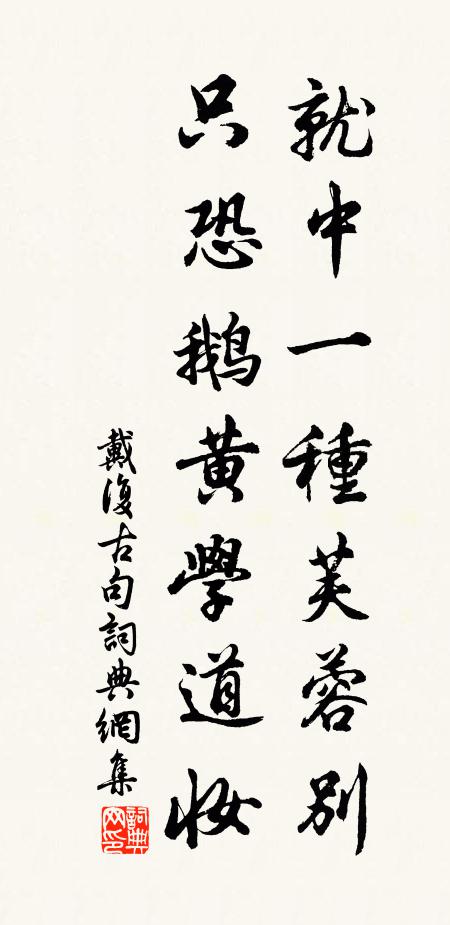 就中一種芙蓉別
只恐鵝黄學道妝
戴復古句詞典網集
詞典網印